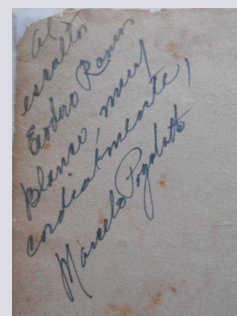 Al
escultor
Teodoro Ramos
Blanco, muy
cordialmente,
Marcelo Pogolotti